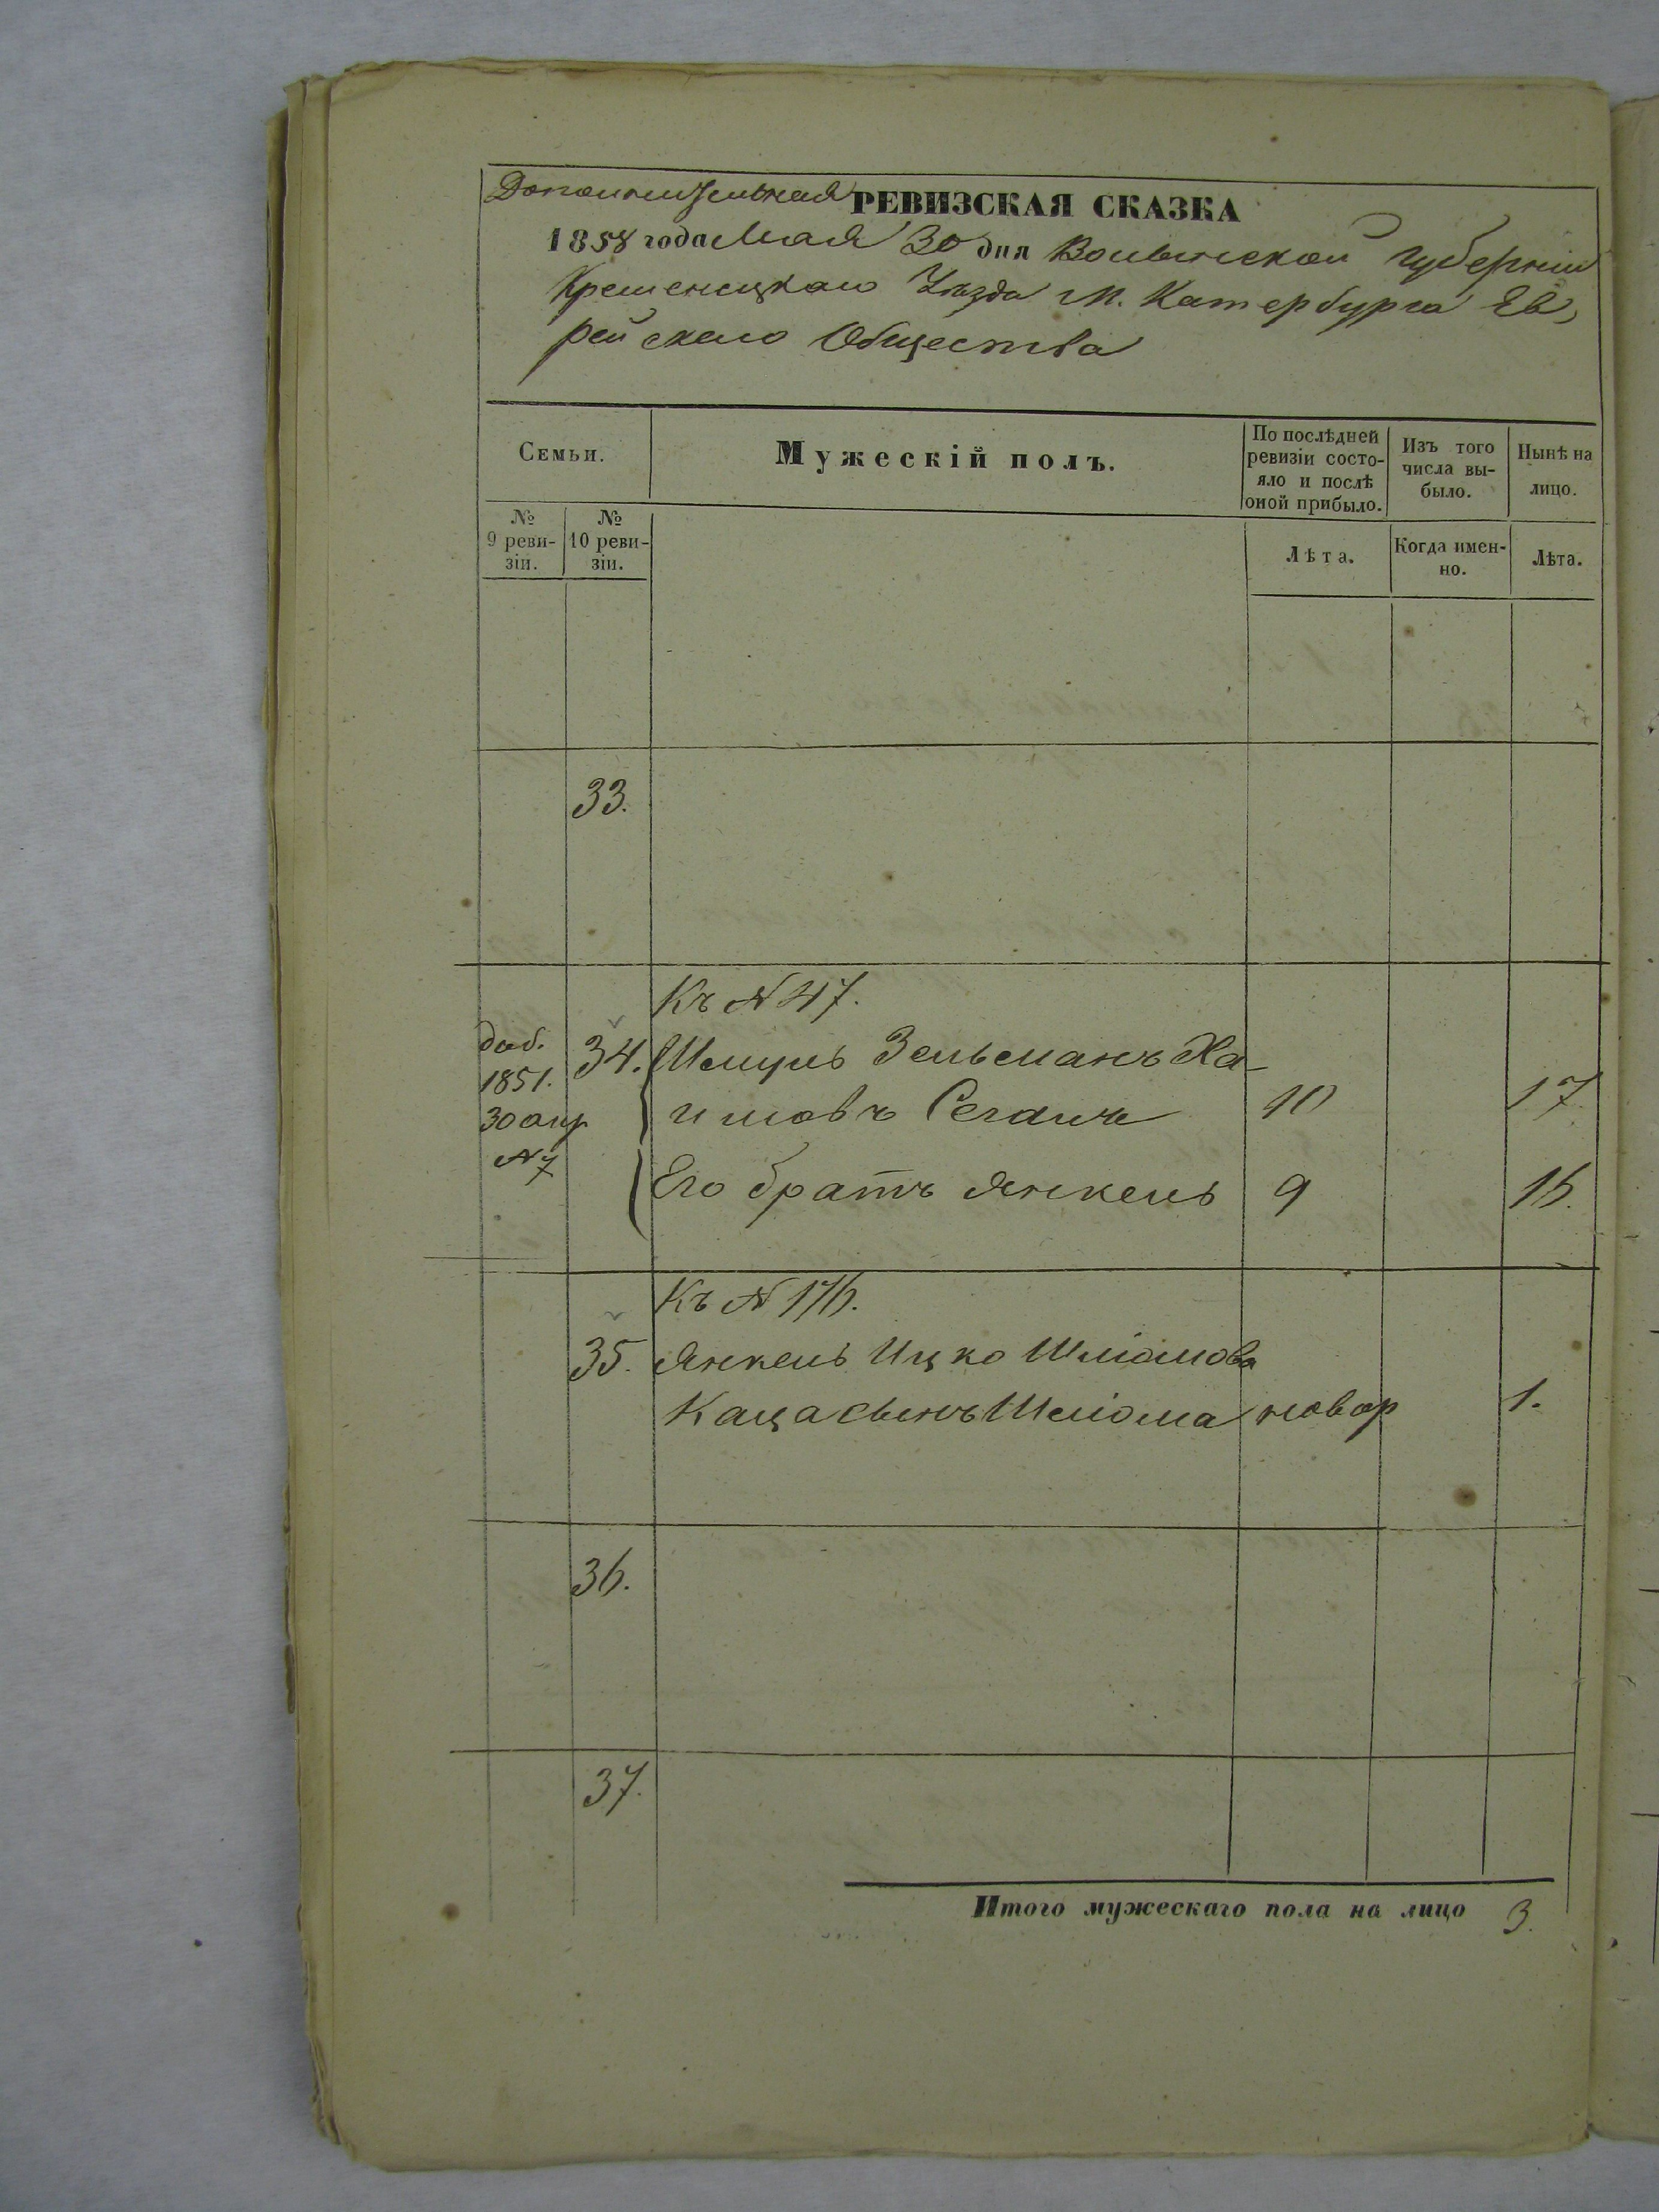 Дополнительная РЕВИЗСКАЯ СКАЗКА
1858 года Мая 30 дня Волынской губернии
Кременецкаго Уѣзда м. Катербурга Ев,
рейскаго Общества
Семьи.
Мужескій полъ.
По послѣдней ревизіи состо-
яло и послѣ оной прибыло.
Изъ того числа вы-
было.
Нынѣ на лицо.
№ 9 реви-
зіи.
№ 10 реви-
зіи.
Лѣта.
Когда имен-
но.
Лѣта.
33.
Къ N 47.
доб. 1851. 30 апр N 7
34. Шмуль Зельманъ Ха-
имовъ Сегалъ 10 17
Его братъ Янкель 9 16.
Къ N 176.
35. Янкель Ицко Шліомова
Каца сынъ Шліома новор 1.
36.
37.
Итого мужескаго пола на лицо 3.